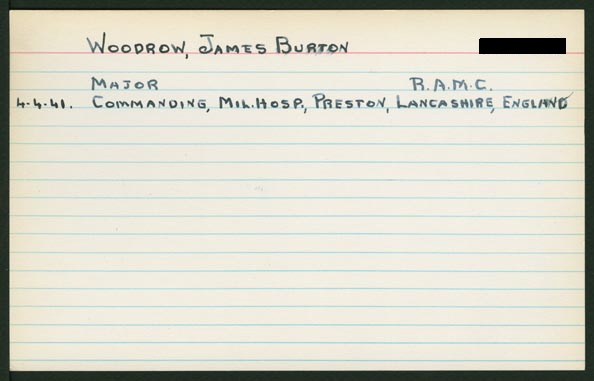 WOODROW, JAMES BURTON
MAJOR R.A.M.C.
4.4.41. COMMANDING, MIL.HOSP., PRESTON, LANCASHIRE, ENGLAND